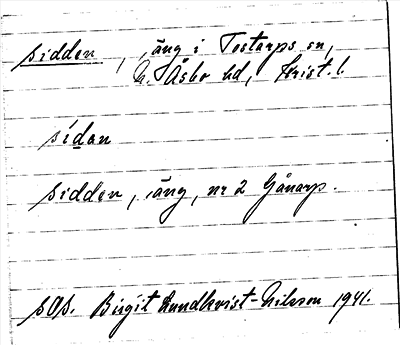 sidden, äng i Tostarps sn,
N. Åsbo hd, Krist. l.
sídan
sidden, äng, nr 2 Gånarp.
SOS. Birgit Lundkvist-Nilsson 1941.